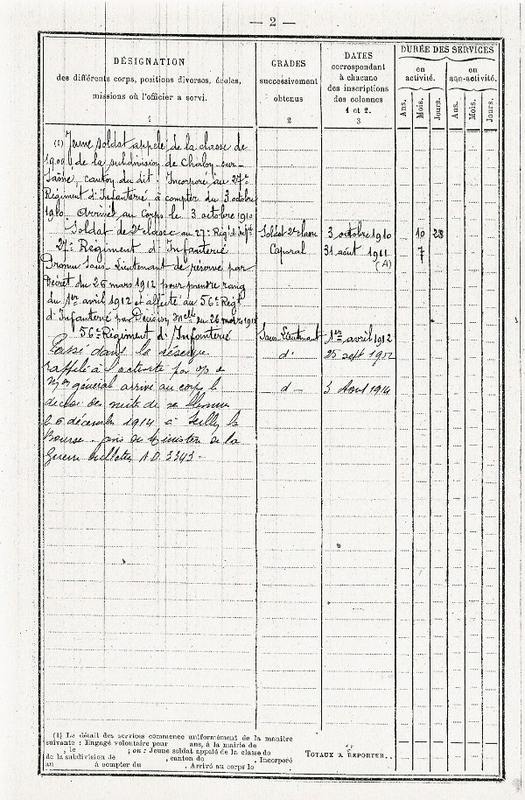 — 2 —
DÉSIGNATION
des différents corps, positions diverses, écoles,
missions où l'officier a servi.
1
GRADES
successivement
obtenus
2
DATES
correspondant
à chacune
des inscriptions
des colonnes
1 et 2.
3
DURÉE DES SERVICES
en
activité.
en
non-activité.
Ans. Mois. Jours. Ans. Mois. Jours.
(1) Jeune soldat appelé de la classe de
1909 de la subdivision de Chalon-sur-
Saône, canton du dit. Incorporé au 27e
Régiment d'Infanterie à compter du 3 octobre
1910. Arrivé au Corps le 3 octobre 1910
Soldat de 2e classe au 27e Régt d'Inftie Soldat 2e classe 3 octobre 1910 10 28
27e Régiment d'Infanterie Caporal 31 août 1911 7
(A)
Promu Sous-Lieutenant de réserve par
Décret du 26 mars 1912 pour prendre rang
du 1er avril 1912 et affecté au 56e Régt
d'Infanterie par Décision Melle du 26 mars 1912
56e Régiment d'Infanterie Sous-Lieutenant 1er avril 1912
Passé dans la réserve d° 25 sept 1912
Rappelé à l'activité par
général arrivé au corps le d° 3 Aout 1914
décédé des suites de
le 6 décembre 1914 à
Bourse. avis du Ministre de la
Guerre A.D. 3343 -
(1) Le détail des services commence uniformément de la manière
suivante : Engagé volontaire pour ans, à la mairie de
, le ; ou : Jeune soldat appelé de la classe de
de la subdivision de , canton de . Incorporé
au à compter du . Arrivé au corps le
TOTAUX A REPORTER..